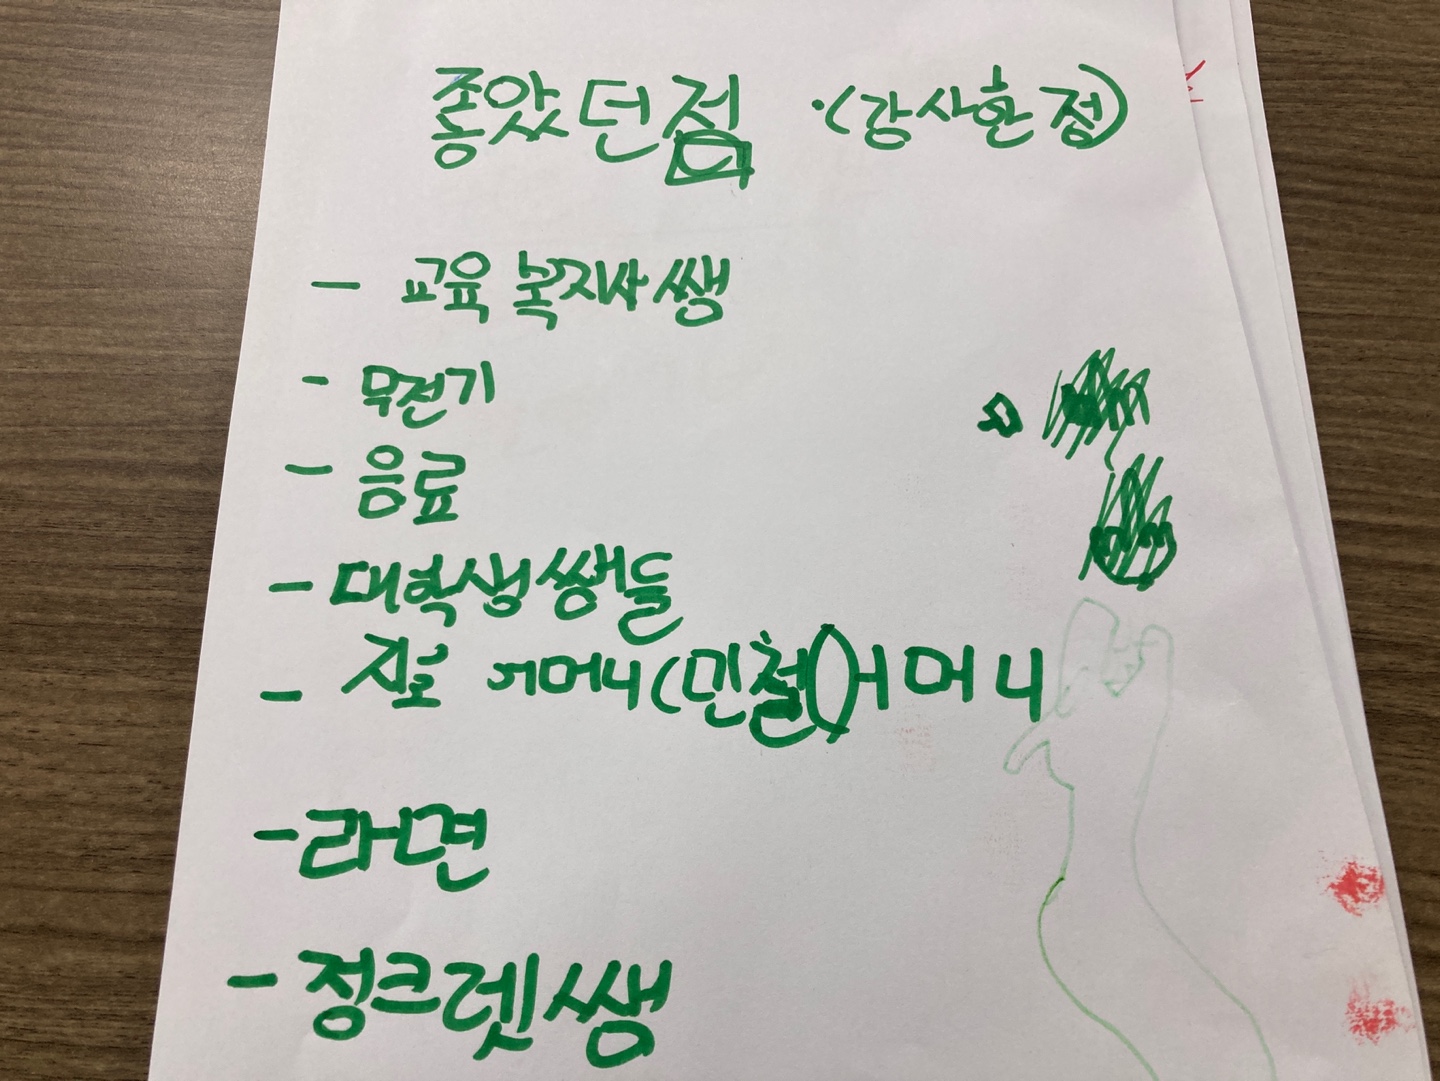 좋았던점 ·(감사한 점)
- 교육 복지사 쌤
- 무전기
- 음료
- 대학생 쌤들
- 지로 어머니 (민철) 어머니
- 라면
- 정크렛쌤